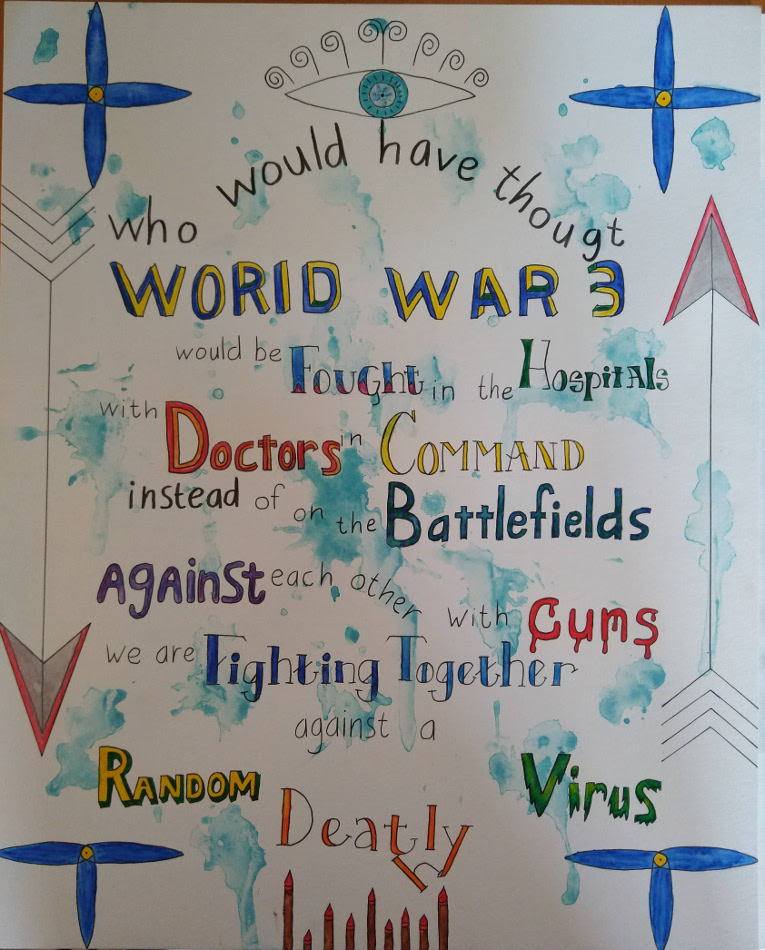 who would have thougt
WORlD WAR 3
would be Fought in the HospitAls
with Doctors in COMMAND
instead of on the Battlefields
AgAinst each other with Guns
we are Fighting Together
against a
RANDOM Deathly Virus